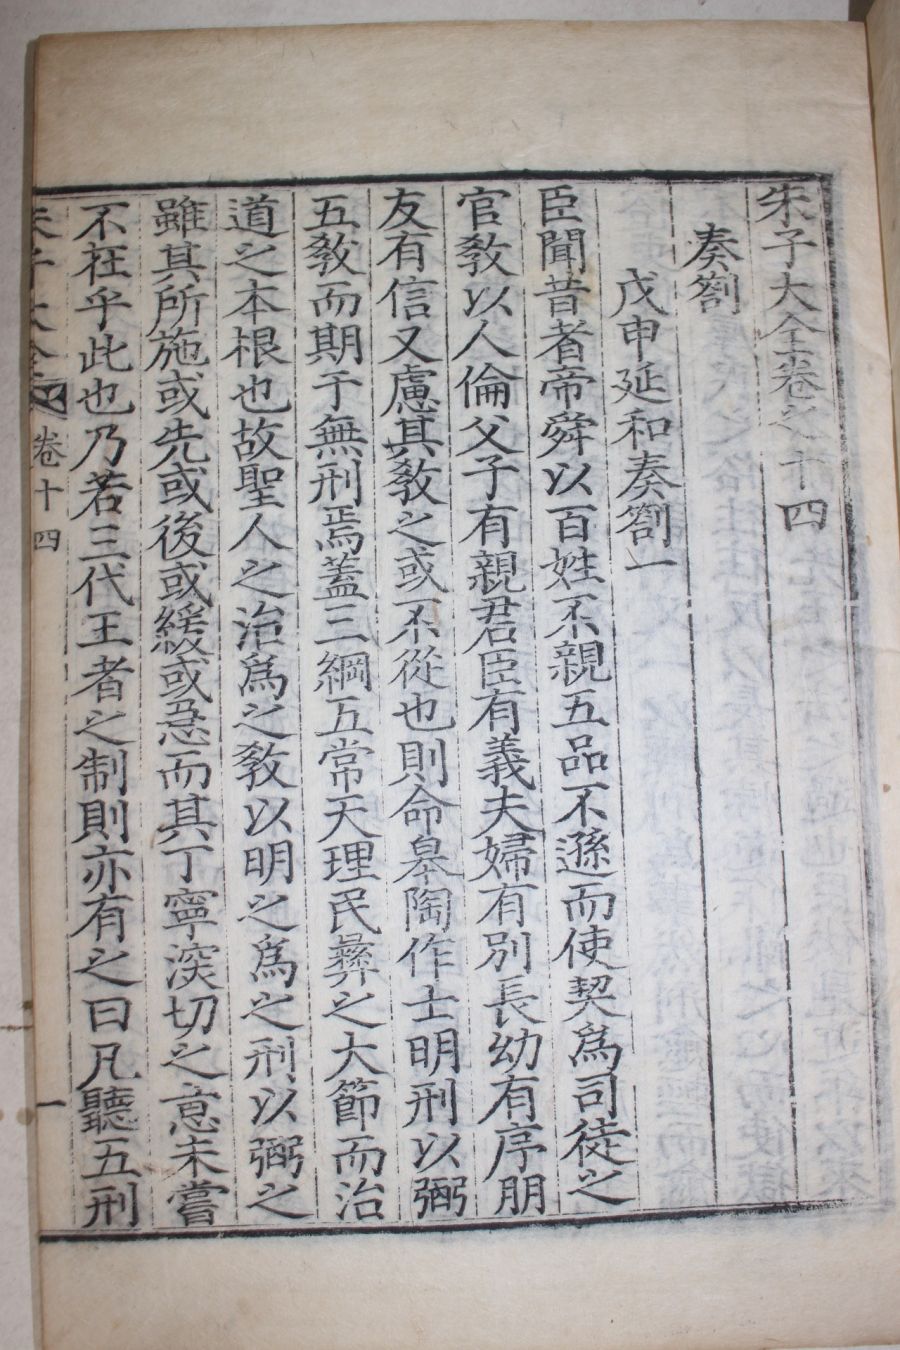 朱子大全卷之十四
奏劄
戊申延和奏劄一
臣聞昔者帝舜以百姓不親五品不遜而使契爲司徒之
官敎以人倫父子有親君臣有義夫婦有別長幼有序朋
友有信又慮其敎之或不從也則命皋陶作士明刑以弼
五敎而期于無刑焉蓋三綱五常天理民彝之大節而治
道之本根也故聖人之治爲之敎以明之爲之刑以弼之
雖其所施或先或後或緩或急而其丁寧深切之意未嘗
不在乎此也乃若三代王者之制則亦有之曰凡聽五刑
朱子大全 卷十四 一